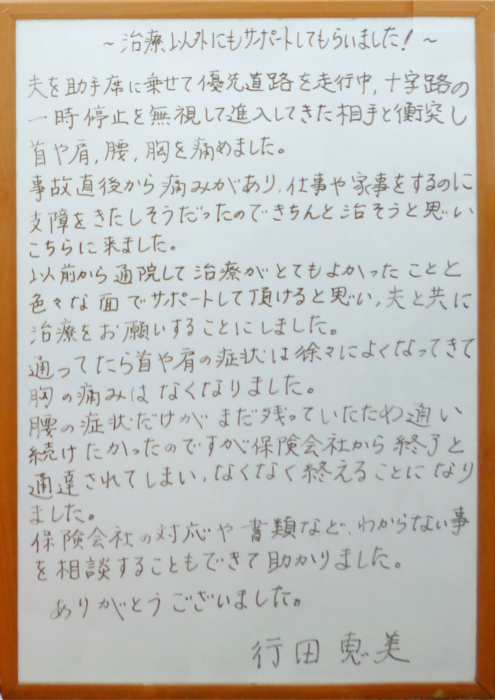 ～治療以外にもサポートしてもらいました!～
夫を助手席に乗せて優先道路を走行中,十字路の
一時停止を無視して進入してきた相手と衝突し
首や肩,腰,胸を痛めました。
事故直後から痛みがあり,仕事や家事をするのに
支障をきたしそうだったのできちんと治そうと思い
こちらに来ました。
以前から通院して治療がとてもよかったことと
色々な面でサポートして頂けると思い,夫と共に
治療をお願いすることにしました。
通ってたら首や肩の症状は徐々によくなってきて
胸の痛みはなくなりました。
腰の症状だけがまだ残っていたため通い
続けたかったのですが保険会社から終了と
通達されてしまい,なくなく終えることになり
ました。
保険会社の対応や書類など,わからない事
を相談することもできて助かりました。
ありがとうございました。
行田恵美